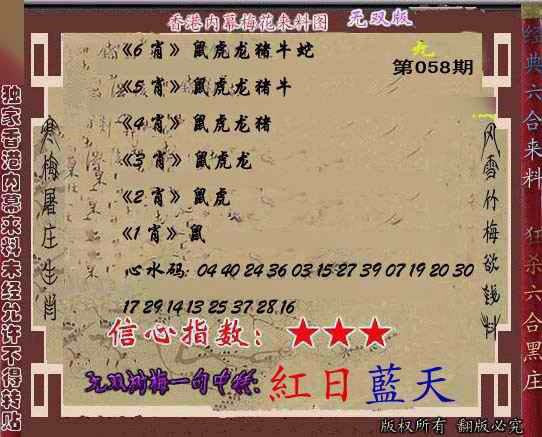 香港内幕梅花来料图 无双版
第058期
《6 肖》 鼠虎龙猪牛蛇
《5 肖》 鼠虎龙猪牛
《4 肖》 鼠虎龙猪
《3 肖》 鼠虎龙
《2 肖》 鼠虎
《1 肖》 鼠
心水码: 04 40 24 36 03 15 27 39 07 19 20 30
17 29 14 13 25 37 28 16
信心指数: ★★★
无双湖梅一句中特: 紅日藍天
独家香港内幕来料未经允许不得转贴
寒梅屠庄生肖
风雪竹梅欲钱料
经典六合来料 狂杀六合黑庄
版权所有 翻版必究